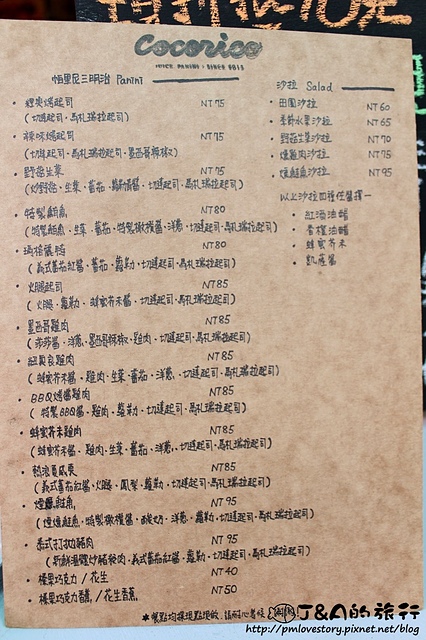 Cocorico
JUICE PANINI · SINCE 2013
帕里尼三明治 Panini
經典焗起司 NT75
(切達起司、馬札瑞拉起司)
辣味焗起司 NT75
(切達起司、馬札瑞拉起司、墨西哥辣椒)
野菇生菜 NT75
(炒野菇、生菜、蕃茄、蘿勒青醬、切達起司、馬札瑞拉起司)
特製鮪魚 NT80
(特製鮪魚、生菜、蕃茄、特製橄欖醬、洋蔥、切達起司、馬札瑞拉起司)
瑪格麗特 NT80
(義式蕃茄紅醬、蕃茄、蘿勒、切達起司、馬札瑞拉起司)
火腿起司 NT85
(火腿、蘿勒、蜂蜜芥末醬、切達起司、馬札瑞拉起司)
墨西哥雞肉 NT85
(莎莎醬、洋蔥、墨西哥辣椒、雞肉、切達起司、馬札瑞拉起司)
紐奧良雞肉 NT85
(蜂蜜芥末醬、雞肉、生菜、蕃茄、洋蔥、切達起司、馬札瑞拉起司)
BBQ烤醬雞肉 NT85
(特製BBQ醬、雞肉、蘿勒、切達起司、馬札瑞拉起司)
蜂蜜芥末雞肉 NT85
(蜂蜜芥末醬、雞肉、生菜、蕃茄、洋蔥、切達起司、馬札瑞拉起司)
熱浪夏威夷 NT85
(義式蕃茄紅醬、火腿、鳳梨、蘿勒、切達起司、馬札瑞拉起司)
煙燻鮭魚 NT95
(煙燻鮭魚、特製橄欖醬、酸奶、洋蔥、蘿勒、切達起司、馬札瑞拉起司)
泰式打拋豬肉 NT95
(新鮮溫體炒豬絞肉、義式蕃茄紅醬、蘿勒、切達起司、馬札瑞拉起司)
榛果巧克力 / 花生 NT40
榛果巧克力香蕉 / 花生香蕉 NT50
*餐點均採現點現做,請耐心等候
沙拉 Salad
田園沙拉 NT60
季節水果沙拉 NT65
野菇生菜沙拉 NT70
燻雞肉沙拉 NT75
燻鮭魚沙拉 NT95
以上沙拉四種任醬擇一
紅酒油醋
香橙油醋
蜂蜜芥末
凱薩醬
J&A的旅行
http://pmlovestory.pixnet.net/blog